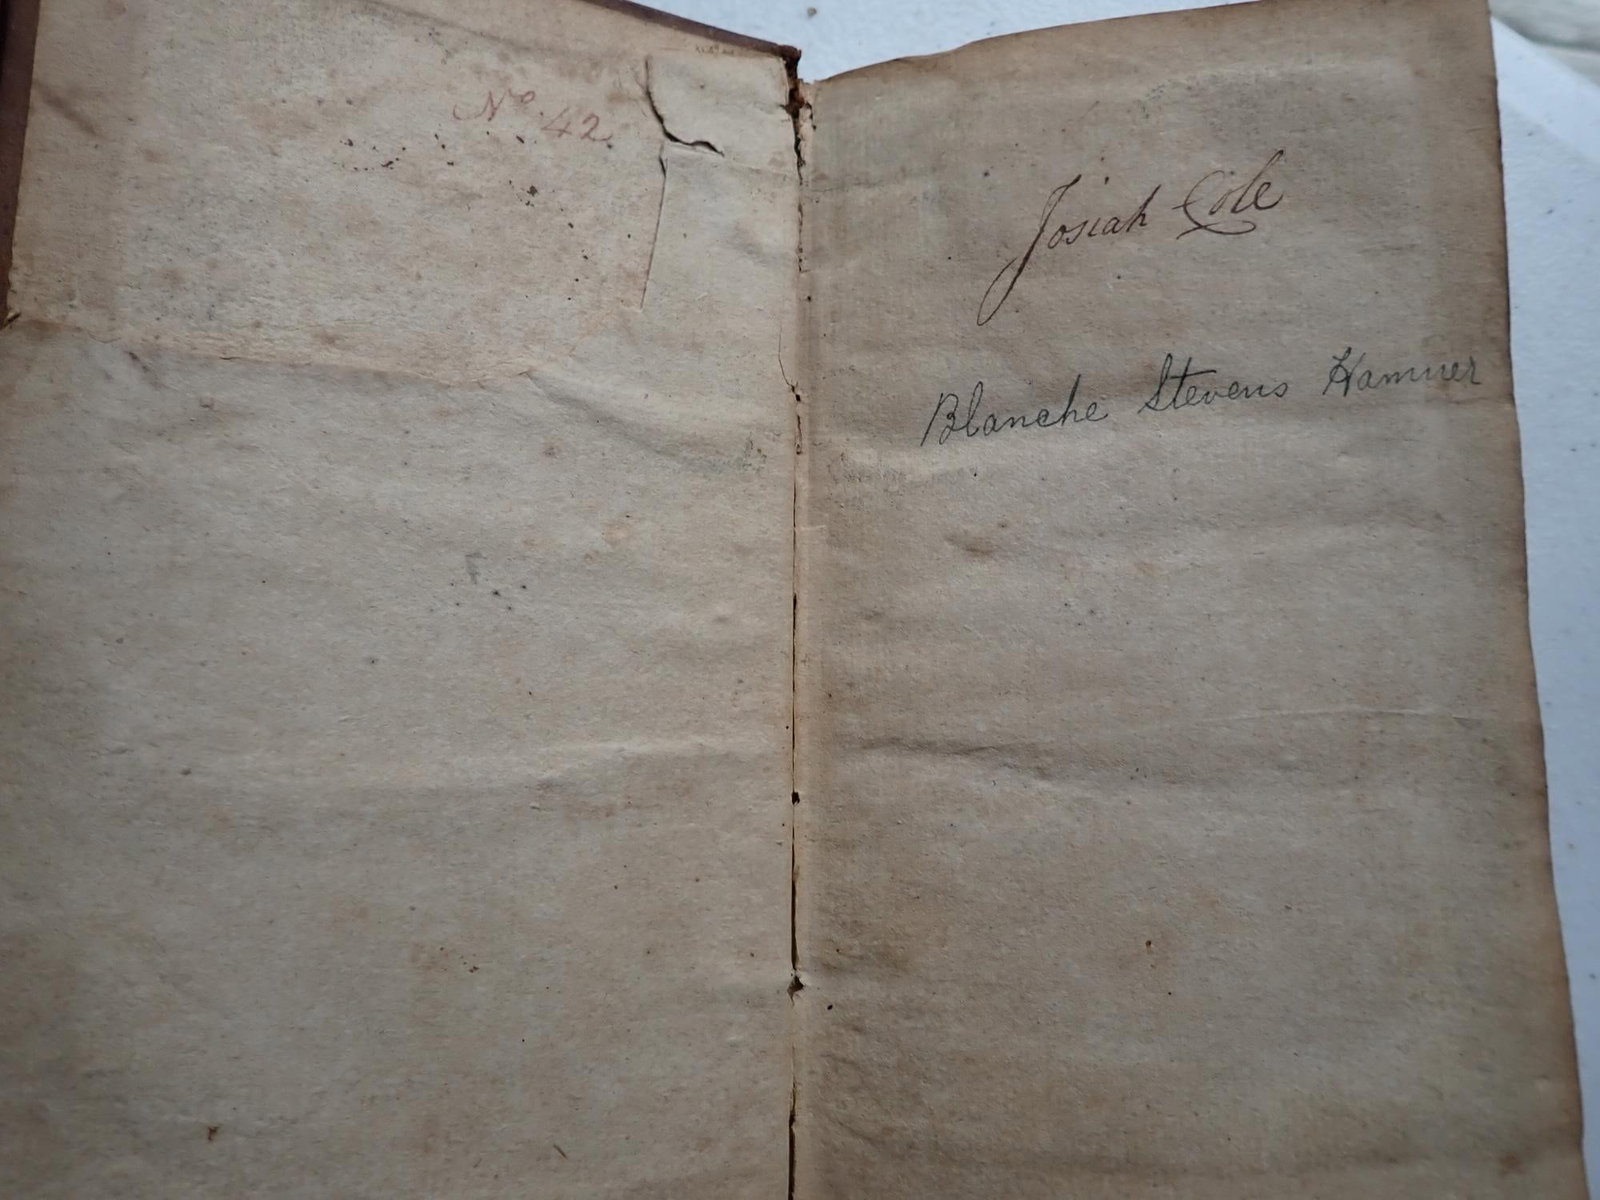 No 42
Josiah Cole
Blanche Stevens Hamner